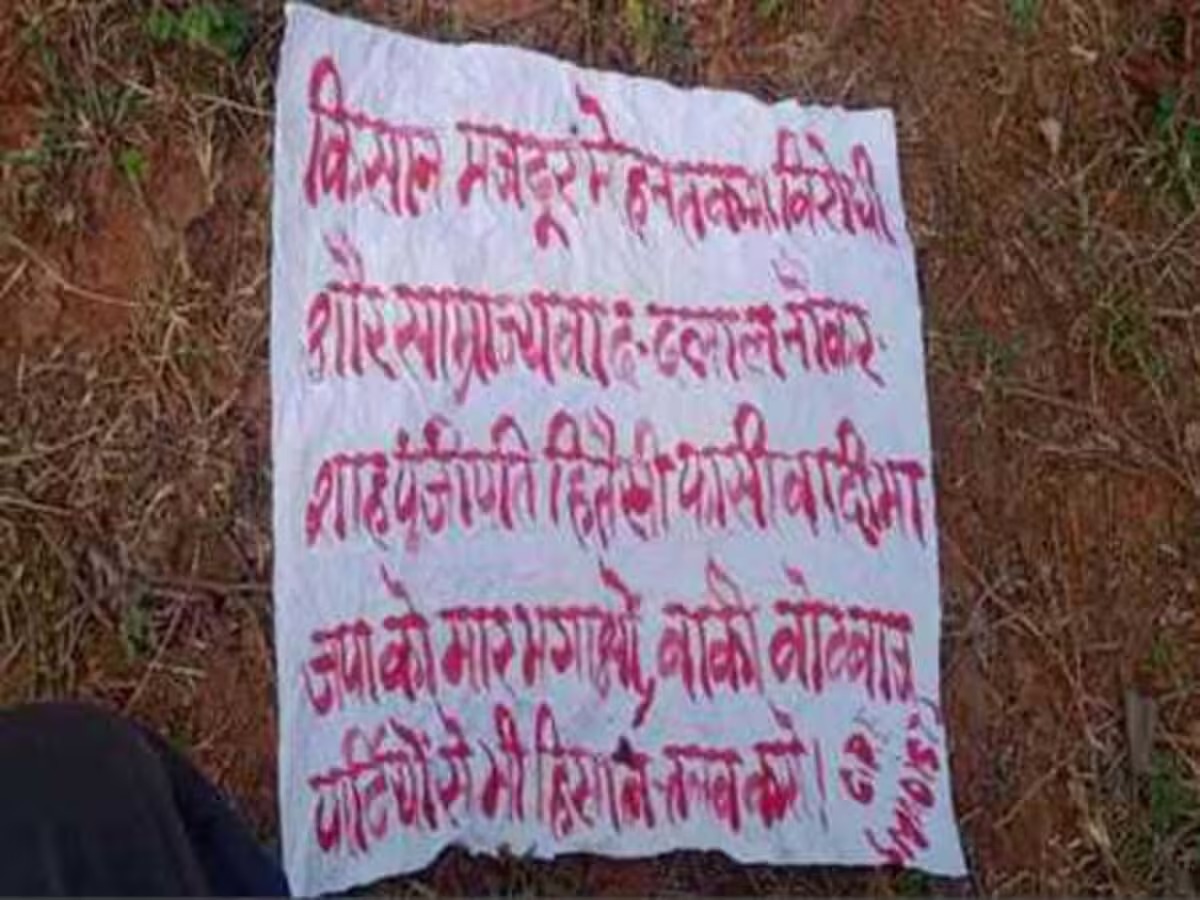 किसान मजदूर मेहनतकश विरोधी
और साम्राज्यवाद-दलाल नौकर-
शाह पूंजीपति हितैसी फासीवादी भा
जपा को मार भगाओ, बाकी वोटबाज
पार्टियों से भी हिसाब-तलब करो।
CPI
(MAOIST)